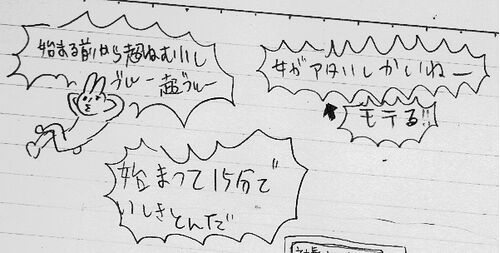 始まる前から超ねむいし
ブルー 超ブルー
女がアタいしかいねー
モテる!!
始まって15分で
いしきとんだ